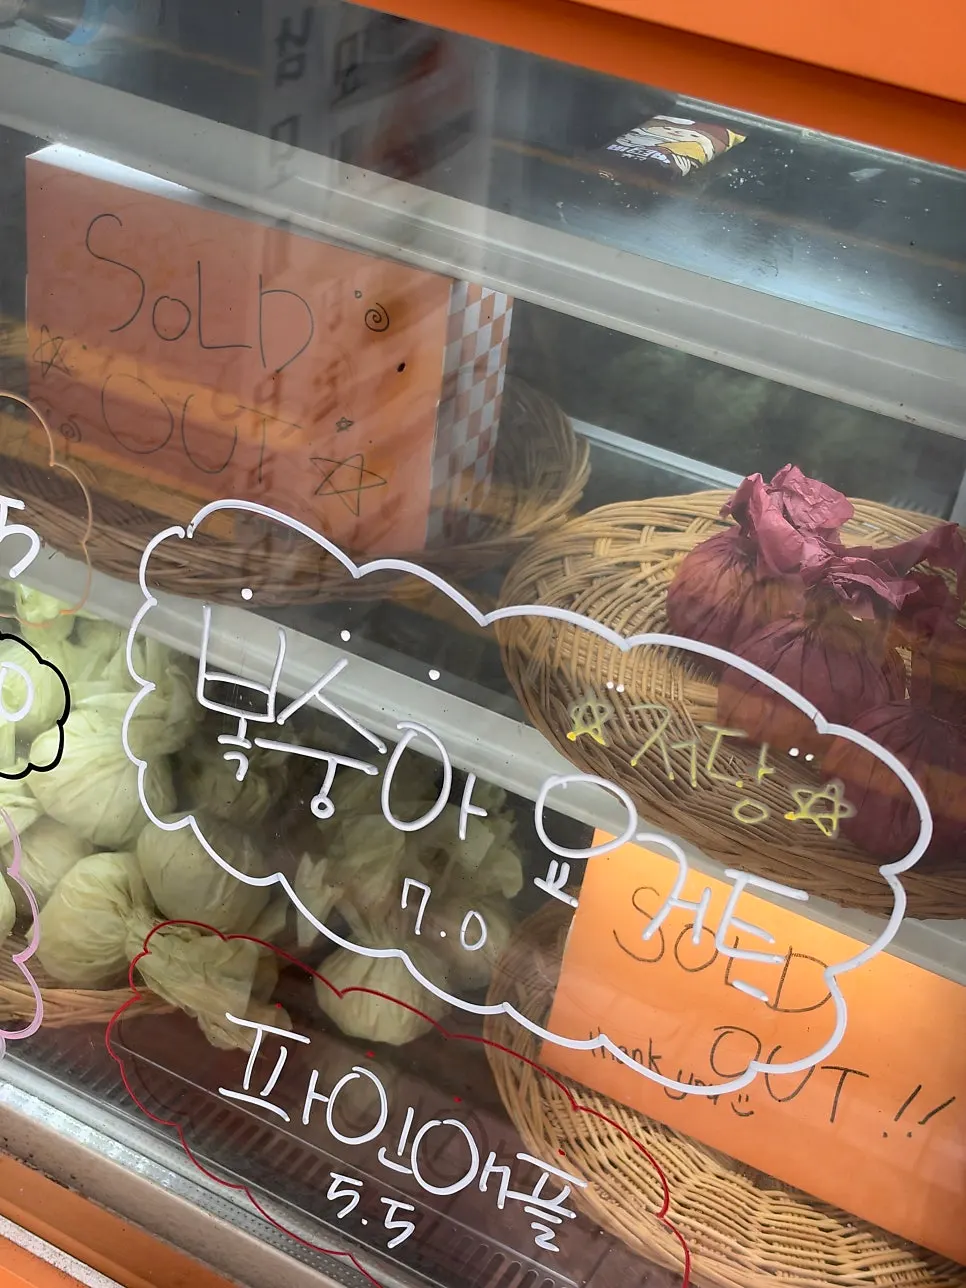 SOLD
OUT
☆저당☆
복숭아 요거트
7.0
SOLD
OUT !!
thank you
파인애플
5.5